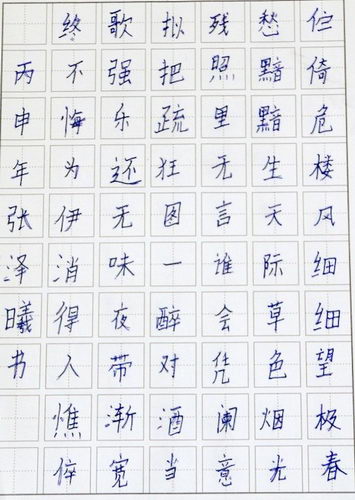 伫倚危楼风细细望极春
愁黯黯生天际草色烟光
残照里无言谁会凭阑意
拟把疏狂图一醉对酒当
歌强乐还无味夜带渐宽
终不悔为伊消得人憔倅
丙申年张泽曦书